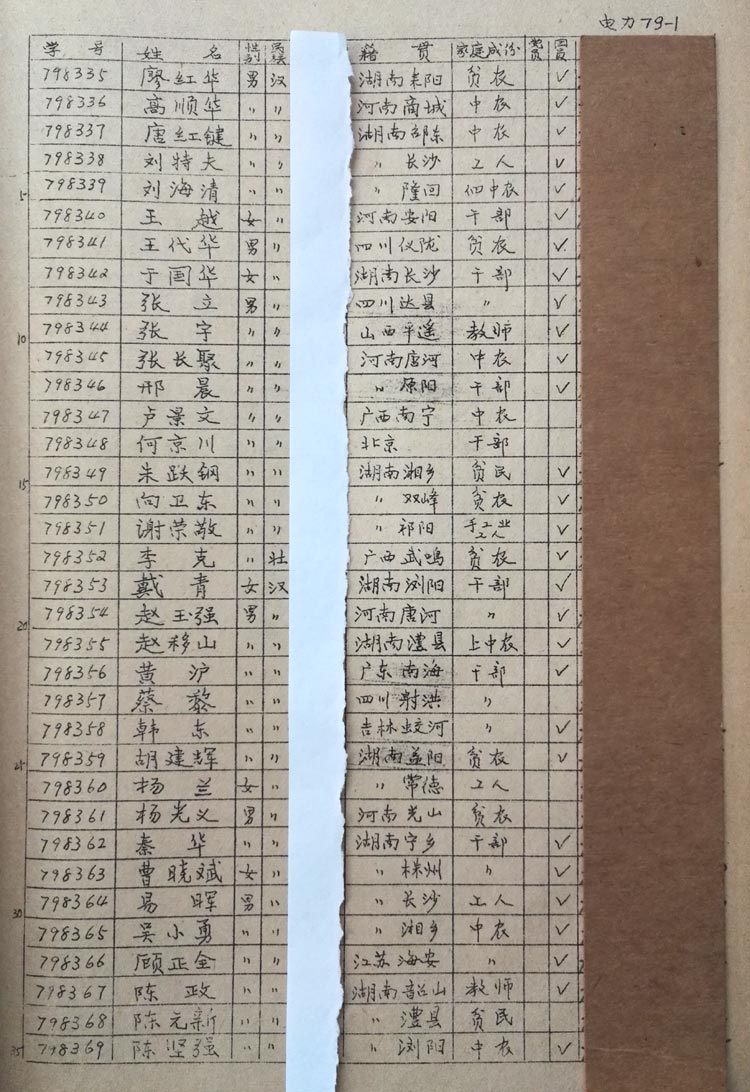 电力79-1
学号 姓名 性别 民族 籍贯 家庭成份 党员 团员
798335 廖红华 男 汉 湖南耒阳 贫农 ✓
798336 高顺华 〃 〃 河南商城 中农 ✓
798337 唐红键 〃 〃 湖南邵东 中农 ✓
798338 刘特夫 〃 〃 〃 长沙 工人 ✓
5 798339 刘海清 〃 〃 〃 隆回 佃中农 ✓
798340 王越 女 〃 河南安阳 干部 ✓
798341 王代华 男 〃 四川仪陇 贫农 ✓
798342 于国华 女 〃 湖南长沙 干部 ✓
798343 张立 男 〃 四川达县 〃 ✓
10 798344 张宇 〃 〃 山西平遥 教师 ✓
798345 张长聚 〃 〃 河南唐河 中农 ✓
798346 邢晨 〃 〃 〃 原阳 干部 ✓
798347 卢景文 〃 〃 广西南宁 中农
798348 何京川 〃 〃 北京 干部
15 798349 朱跃钢 〃 〃 湖南湘乡 贫民 ✓
798350 向卫东 〃 〃 〃 双峰 贫农 ✓
798351 谢荣敬 〃 〃 〃 祁阳 手工业工人 ✓
798352 李克 〃 壮 广西武鸣 贫农 ✓
798353 戴青 女 汉 湖南浏阳 干部 ✓
20 798354 赵玉强 男 〃 河南唐河 〃 ✓
798355 赵移山 〃 〃 湖南澧县 上中农 ✓
798356 黄沪 〃 〃 广东南海 干部 ✓
798357 蔡黎 〃 〃 四川射洪 〃
798358 韩东 〃 〃 吉林蛟河 〃 ✓
25 798359 胡建辉 〃 〃 湖南益阳 贫农 ✓
798360 杨兰 女 〃 〃 常德 工人
798361 杨光义 男 〃 河南光山 贫农
798362 秦华 〃 〃 湖南宁乡 干部 ✓
798363 曹晓斌 女 〃 〃 株州 〃 ✓
30 798364 易晖 男 〃 〃 长沙 工人 ✓
798365 吴小勇 〃 〃 〃 湘乡 中农 ✓
798366 顾正全 〃 〃 江苏海安 〃 ✓
798367 陈政 〃 〃 湖南韶山 教师 ✓
798368 陈元新 〃 〃 〃 澧县 贫民
35 798369 陈坚强 〃 〃 〃 浏阳 中农 ✓